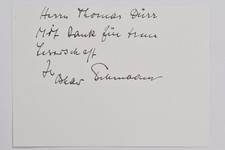 Herrn Thomas Dürr
Mit Dank für treue
Leserschaft
Ihr